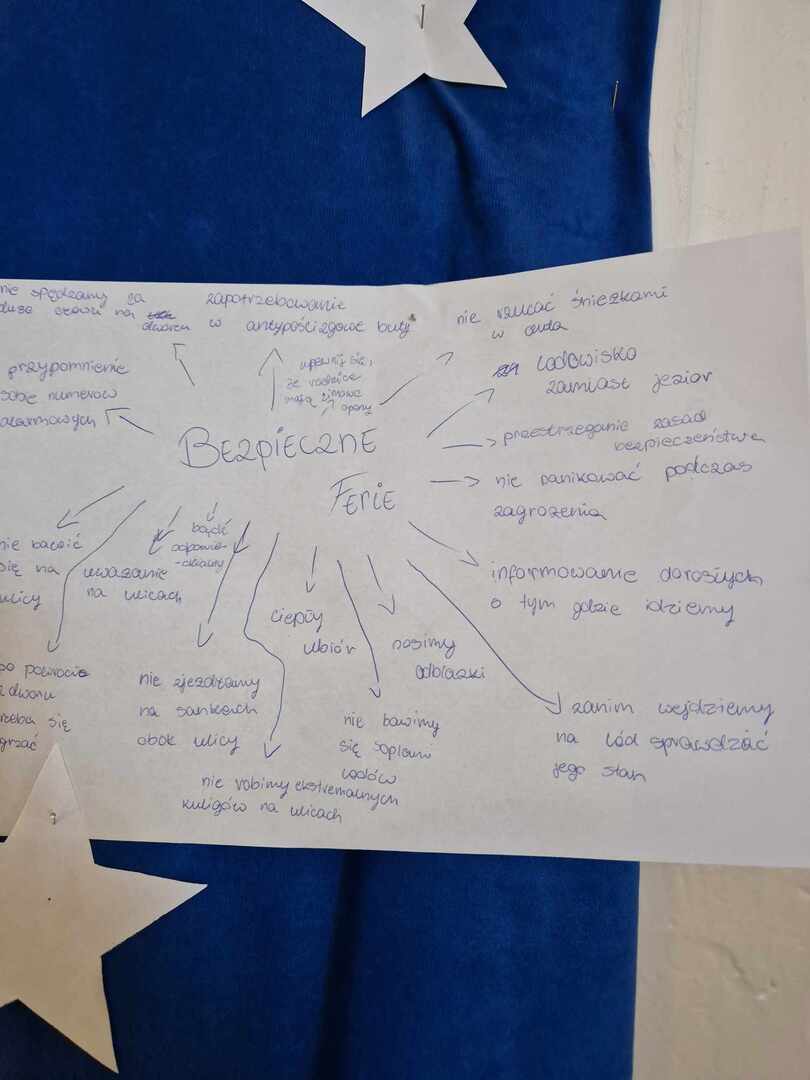 nie spędzamy za
dużo czasu na
dworcu
zapotrzebowanie
w antypoślizgowe buty
nie rzucać śnieżkami
w auta
upewnij się,
że rodzice
mają zimowe
opony
lodowisko
zamiast jezior
przypomnienie
sobie numerów
alarmowych
przestrzeganie zasad
bezpieczeństwa
BEZPIECZNE
FERIE
nie panikować podczas
zagrożenia
informowanie dorosłych
o tym gdzie idziemy
nie bawić
się na
ulicy
uważanie
na ulicach
bądź
odpowie-
-dzialny
ciepły
ubiór
nosimy
odblaski
po powrocie
z dworu
trzeba się
grzać
nie zjeżdżamy
na sankach
obok ulicy
nie robimy ekstremalnych
kuligów na ulicach
nie bawimy
się soplami
lodów
zanim wejdziemy
na lód sprawdzać
jego stan